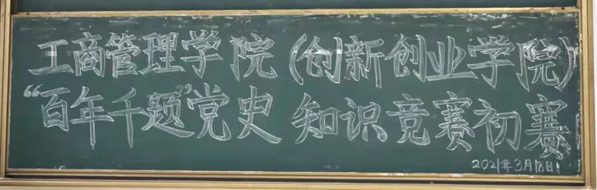 工商管理学院(创新创业学院)
“百年千题”党史 知识竞赛初赛
2021年3月18日